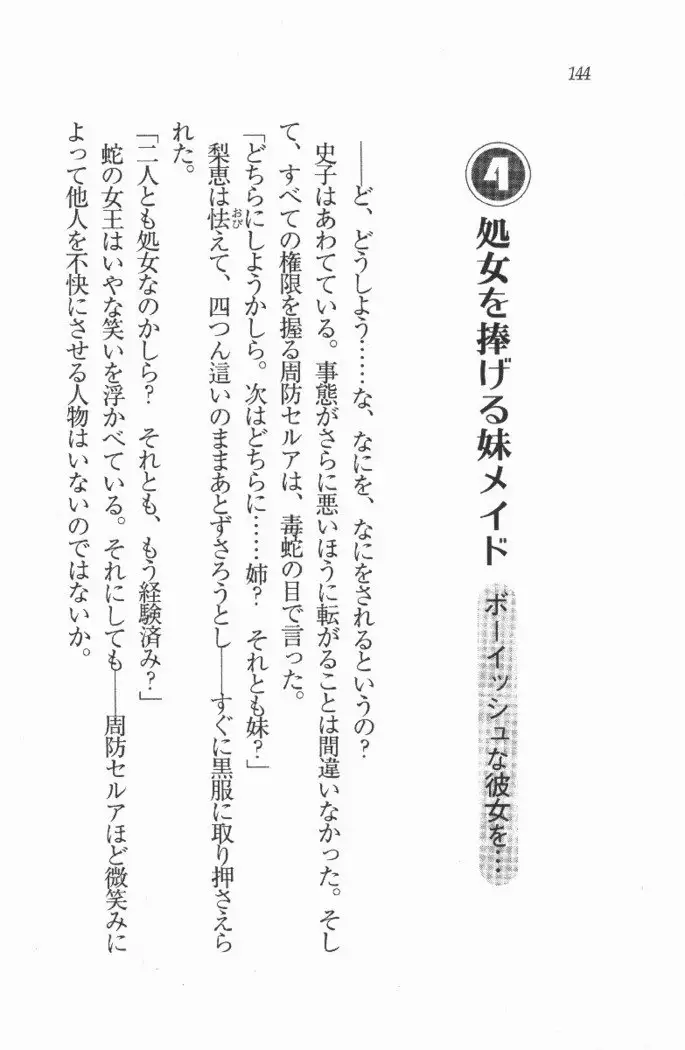 144
4 処女を捧げる妹メイド ボーイッシュな彼女を…
――ど、どうしよう……な、なにを、なにをされるというの？
史子はあわてている。事態がさらに悪いほうに転がることは間違いなかった。そし
て、すべての権限を握る周防セルアは、毒蛇の目で言った。
「どちらにしようかしら。次はどちらに……姉？　それとも妹？」
梨恵は怯えて、四つん這いのままあとずさろうとし――すぐに黒服に取り押さえら
おび
れた。
「二人とも処女なのかしら？　それとも、もう経験済み？」
蛇の女王はいやな笑いを浮かべている。それにしても――周防セルアほど微笑みに
よって他人を不快にさせる人物はいないのではないか。